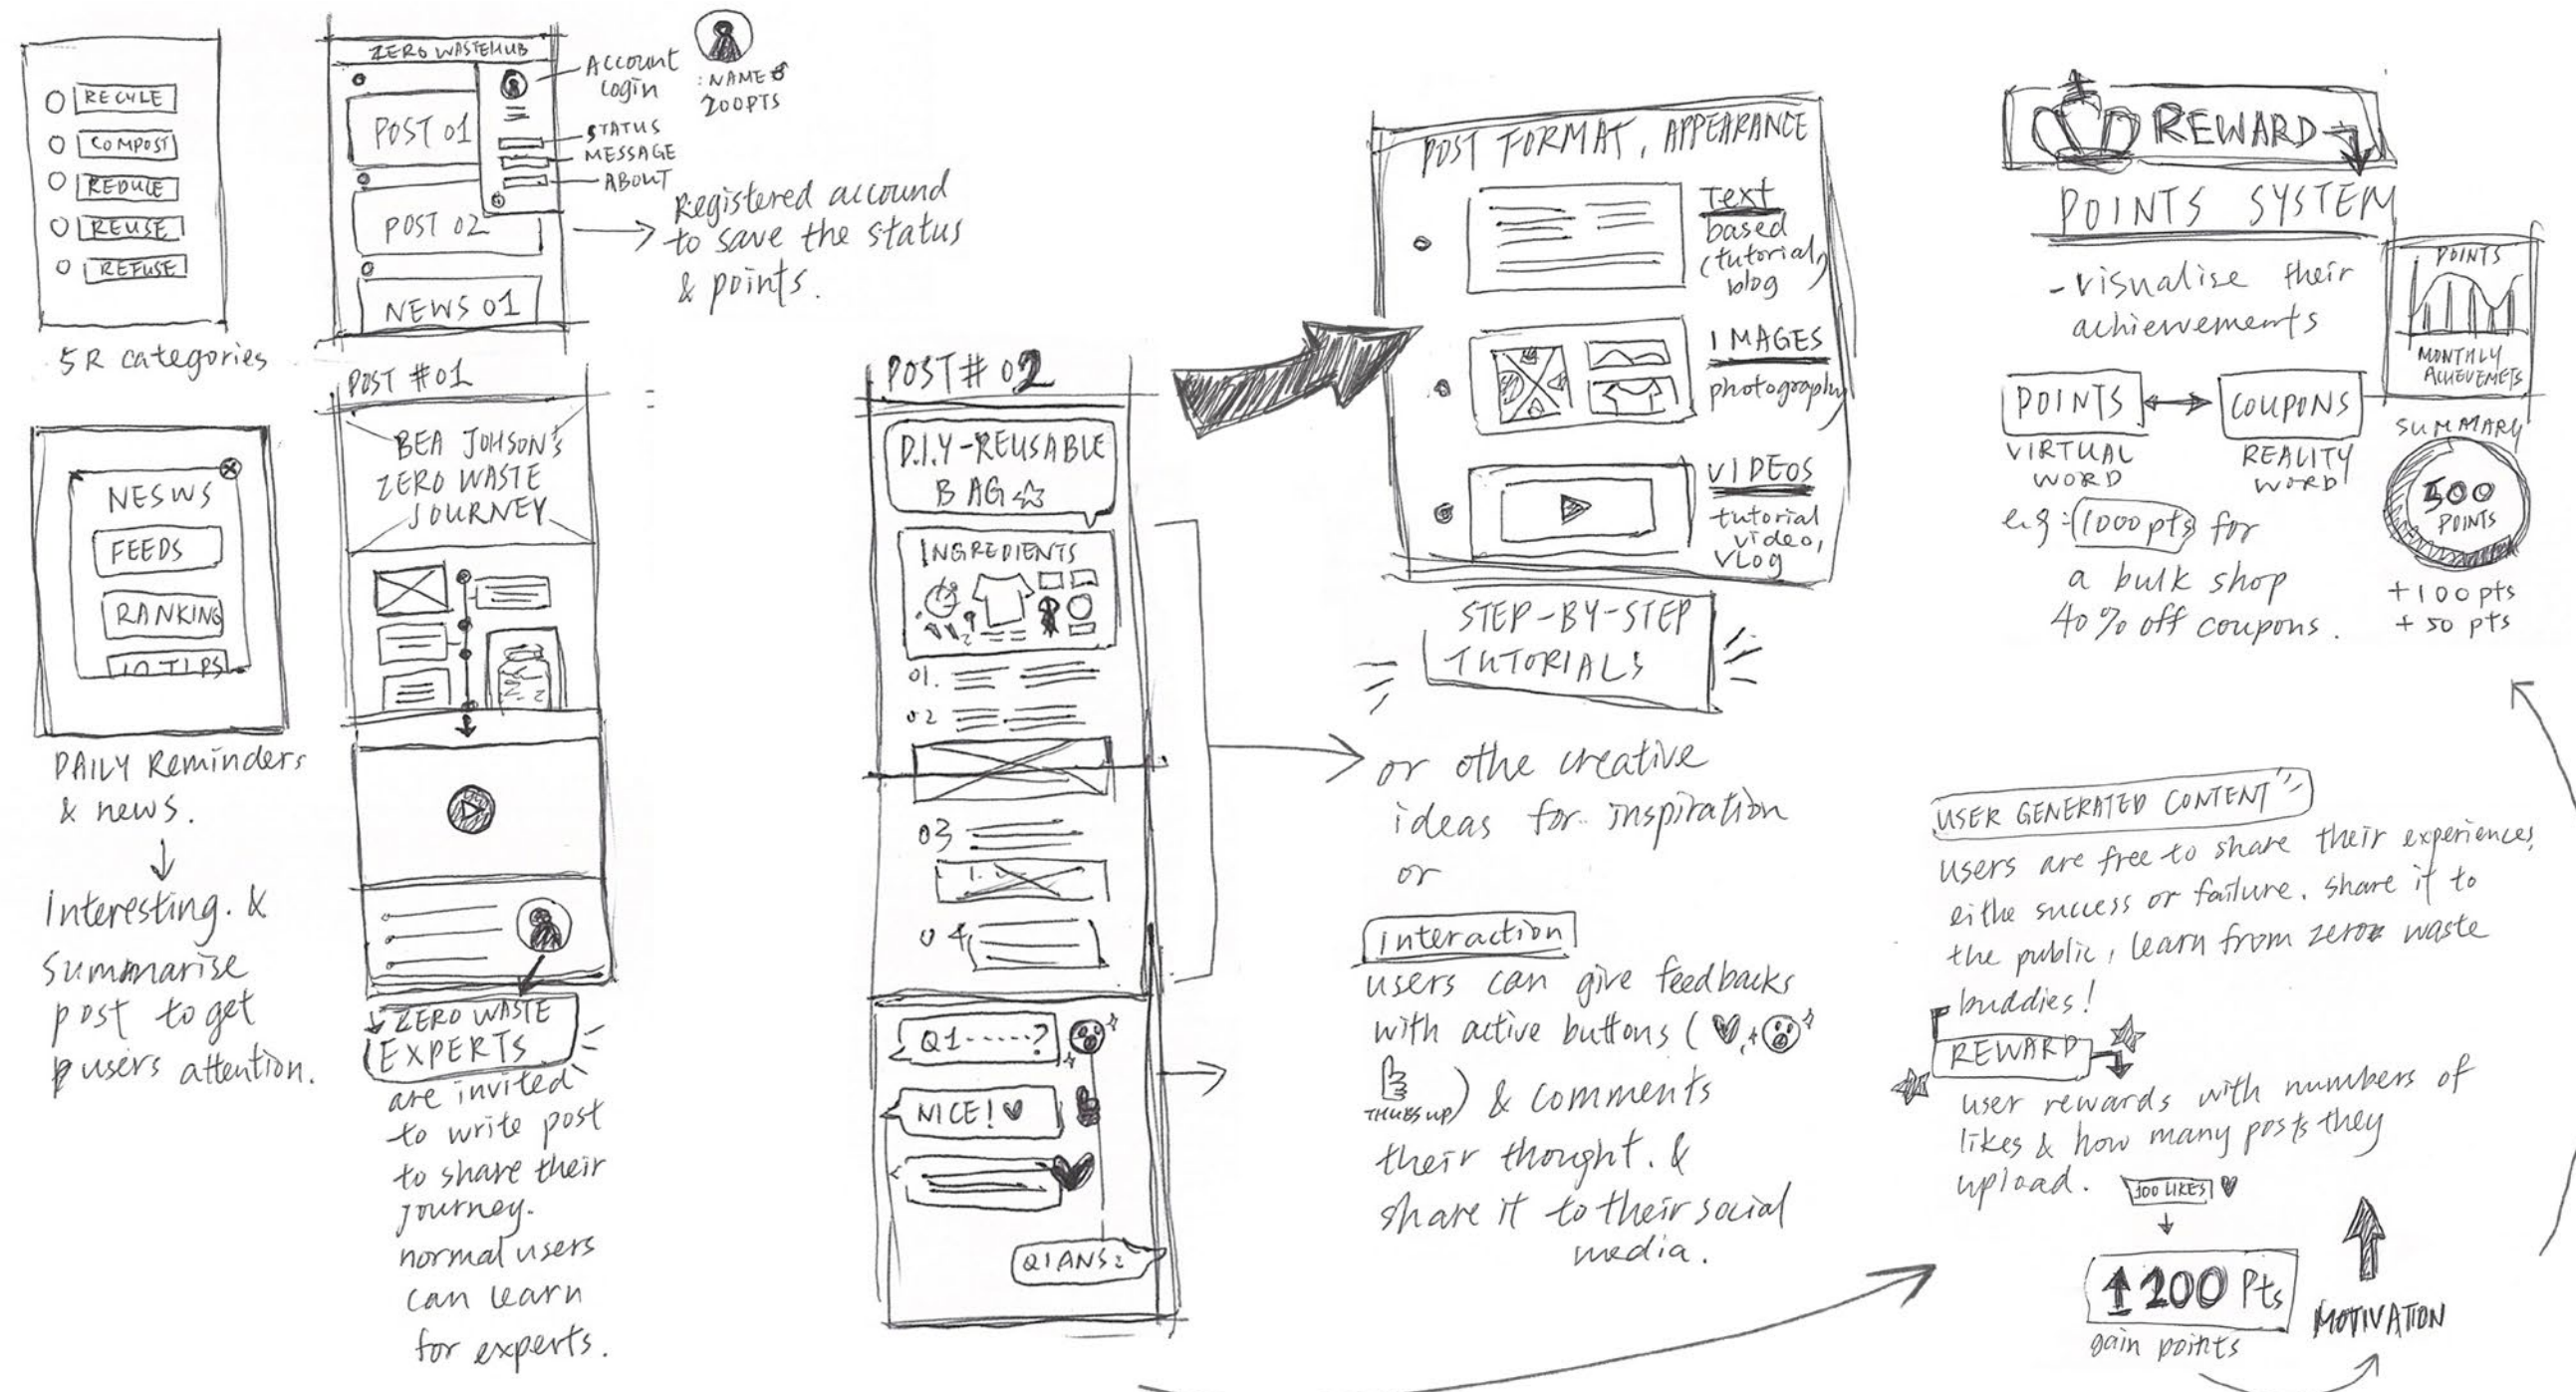 RECYLE
COMPOST
REDUCE
REUSE
REFUSE
5R categories
ZERO WASTEHUB
POST 01
POST 02
NEWS 01
Account
Login
STATUS
MESSAGE
ABOUT
: NAME
200PTS
Registered accound
to save the status
& points.
NESWS
FEEDS
RANKING
10 TIPS
DAILY Reminders
& news.
Interesting. &
Summarise
post to get
users attention.
POST #01
BEA JOHSON'S
ZERO WASTE
JOURNEY
ZERO WASTE
EXPERTS
are invited
to write post
to share their
journey.
normal users
can learn
for experts.
POST # 02
D.I.Y-REUSABLE
BAG
INGREDIENTS
01.
02
03
04
Q1-----?
NICE!
Q1ANS:
POST FORMAT, APPEARANCE
Text
based
(tutorial,
blog
IMAGES
photography
VIDEOS
tutorial
video,
vlog
STEP-BY-STEP
TUTORIALS
or othe creative
ideas for inspiration
or
interaction
users can give feedbacks
with active buttons ( ♥, +
THUBS UP) & comments
their thought. &
share it to their social
media.
REWARD
POINTS SYSTEM
- visualise their
achievements
POINTS
MONTHLY
ACHIEVEMETS
POINTS
VIRTUAL
WORD
COUPONS
REALITY
WORD
e.g: 1000pts for
a bulk shop
40% off coupons.
SUMMARY
500
POINTS
+100pts
+ 50 pts
USER GENERATED CONTENT
users are free to share their experiences,
eithe success or failure. share it to
the public, learn from zero waste
buddies!
REWARD
user rewards with numbers of
likes & how many posts they
upload.
100 LIKES ♥
↑200 Pts
gain points
MOTIVATION